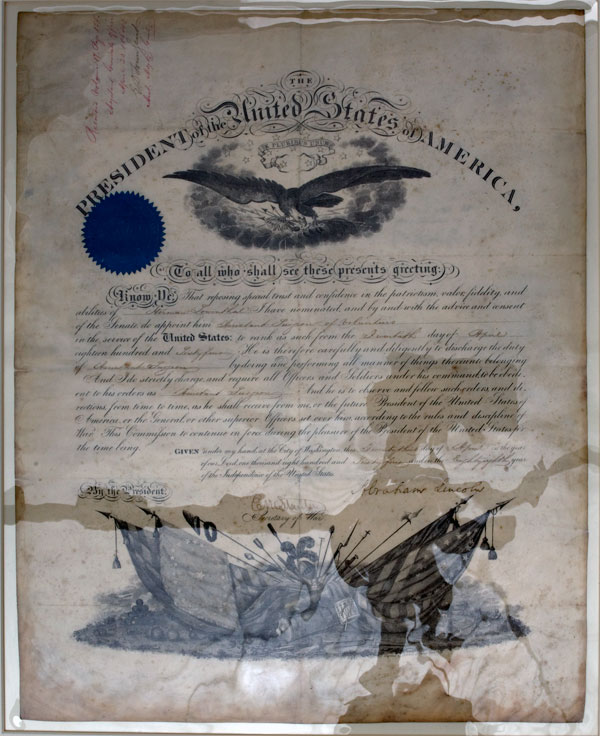 THE
PRESIDENT of the United States of AMERICA,
E PLURIBUS UNUM
To all who shall see these presents greeting:
Know Ye, That reposing special trust and confidence in the patriotism, valor, fidelity, and
abilities of I have nominated, and by and with the advice and consent
of the Senate do appoint him Assistant Surgeon of Volunteers
in the service of the United States: to rank as such from the day of April
eighteen hundred and He is therefore carefully and diligently to discharge the duty
of Assistant Surgeon by doing and performing all manner of things thereunto belonging.
And I do strictly charge, and require all Officers and Soldiers under his command to be obedi-
ent to his orders as Assistant Surgeon And he is to observe and follow such orders, and di-
rections, from time to time, as he shall receive from me, or the future President of the United States of
America, or the General, or other superior Officers set over him, according to the rules and discipline of
War. This Commission to continue in force during the pleasure of the President of the United States, for
the time being.
GIVEN under my hand, at the City of Washington, this day of April in the year
of our Lord one thousand eight hundred and and in the year
of the Independence of the United States.
By the President:
Abraham Lincoln
Secretary of War